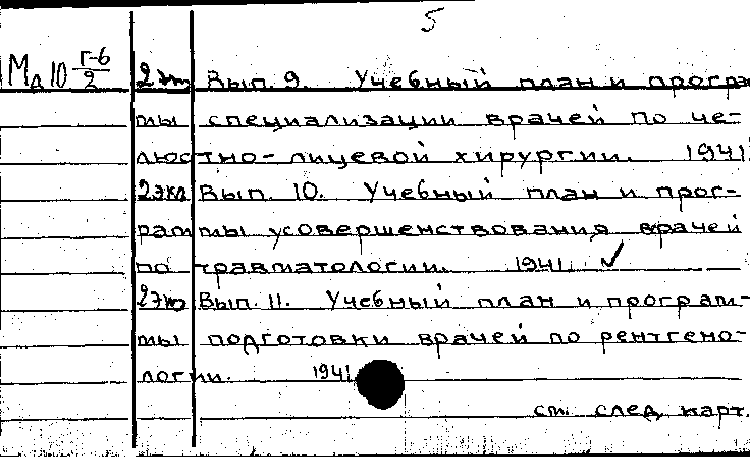 5
Мд10 Г-6/2
2 эк Вып. 9. Учебный план и програм
мы специализации врачей по че-
люстно-лицевой хирургии. 1941
2 экз Вып. 10. Учебный план и прог-
раммы усовершенствования врачей
по травматологии. 1941. ✓
2 эк Вып. 11. Учебный план и програм-
мы подготовки врачей по рентгено-
логии. 1941.
см. след. карт.